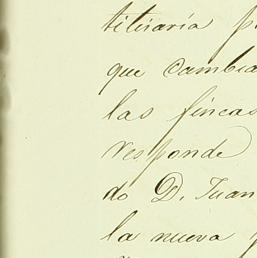 tituaría p
que cambia
las fincas
responde
do D. Juan
la nueva